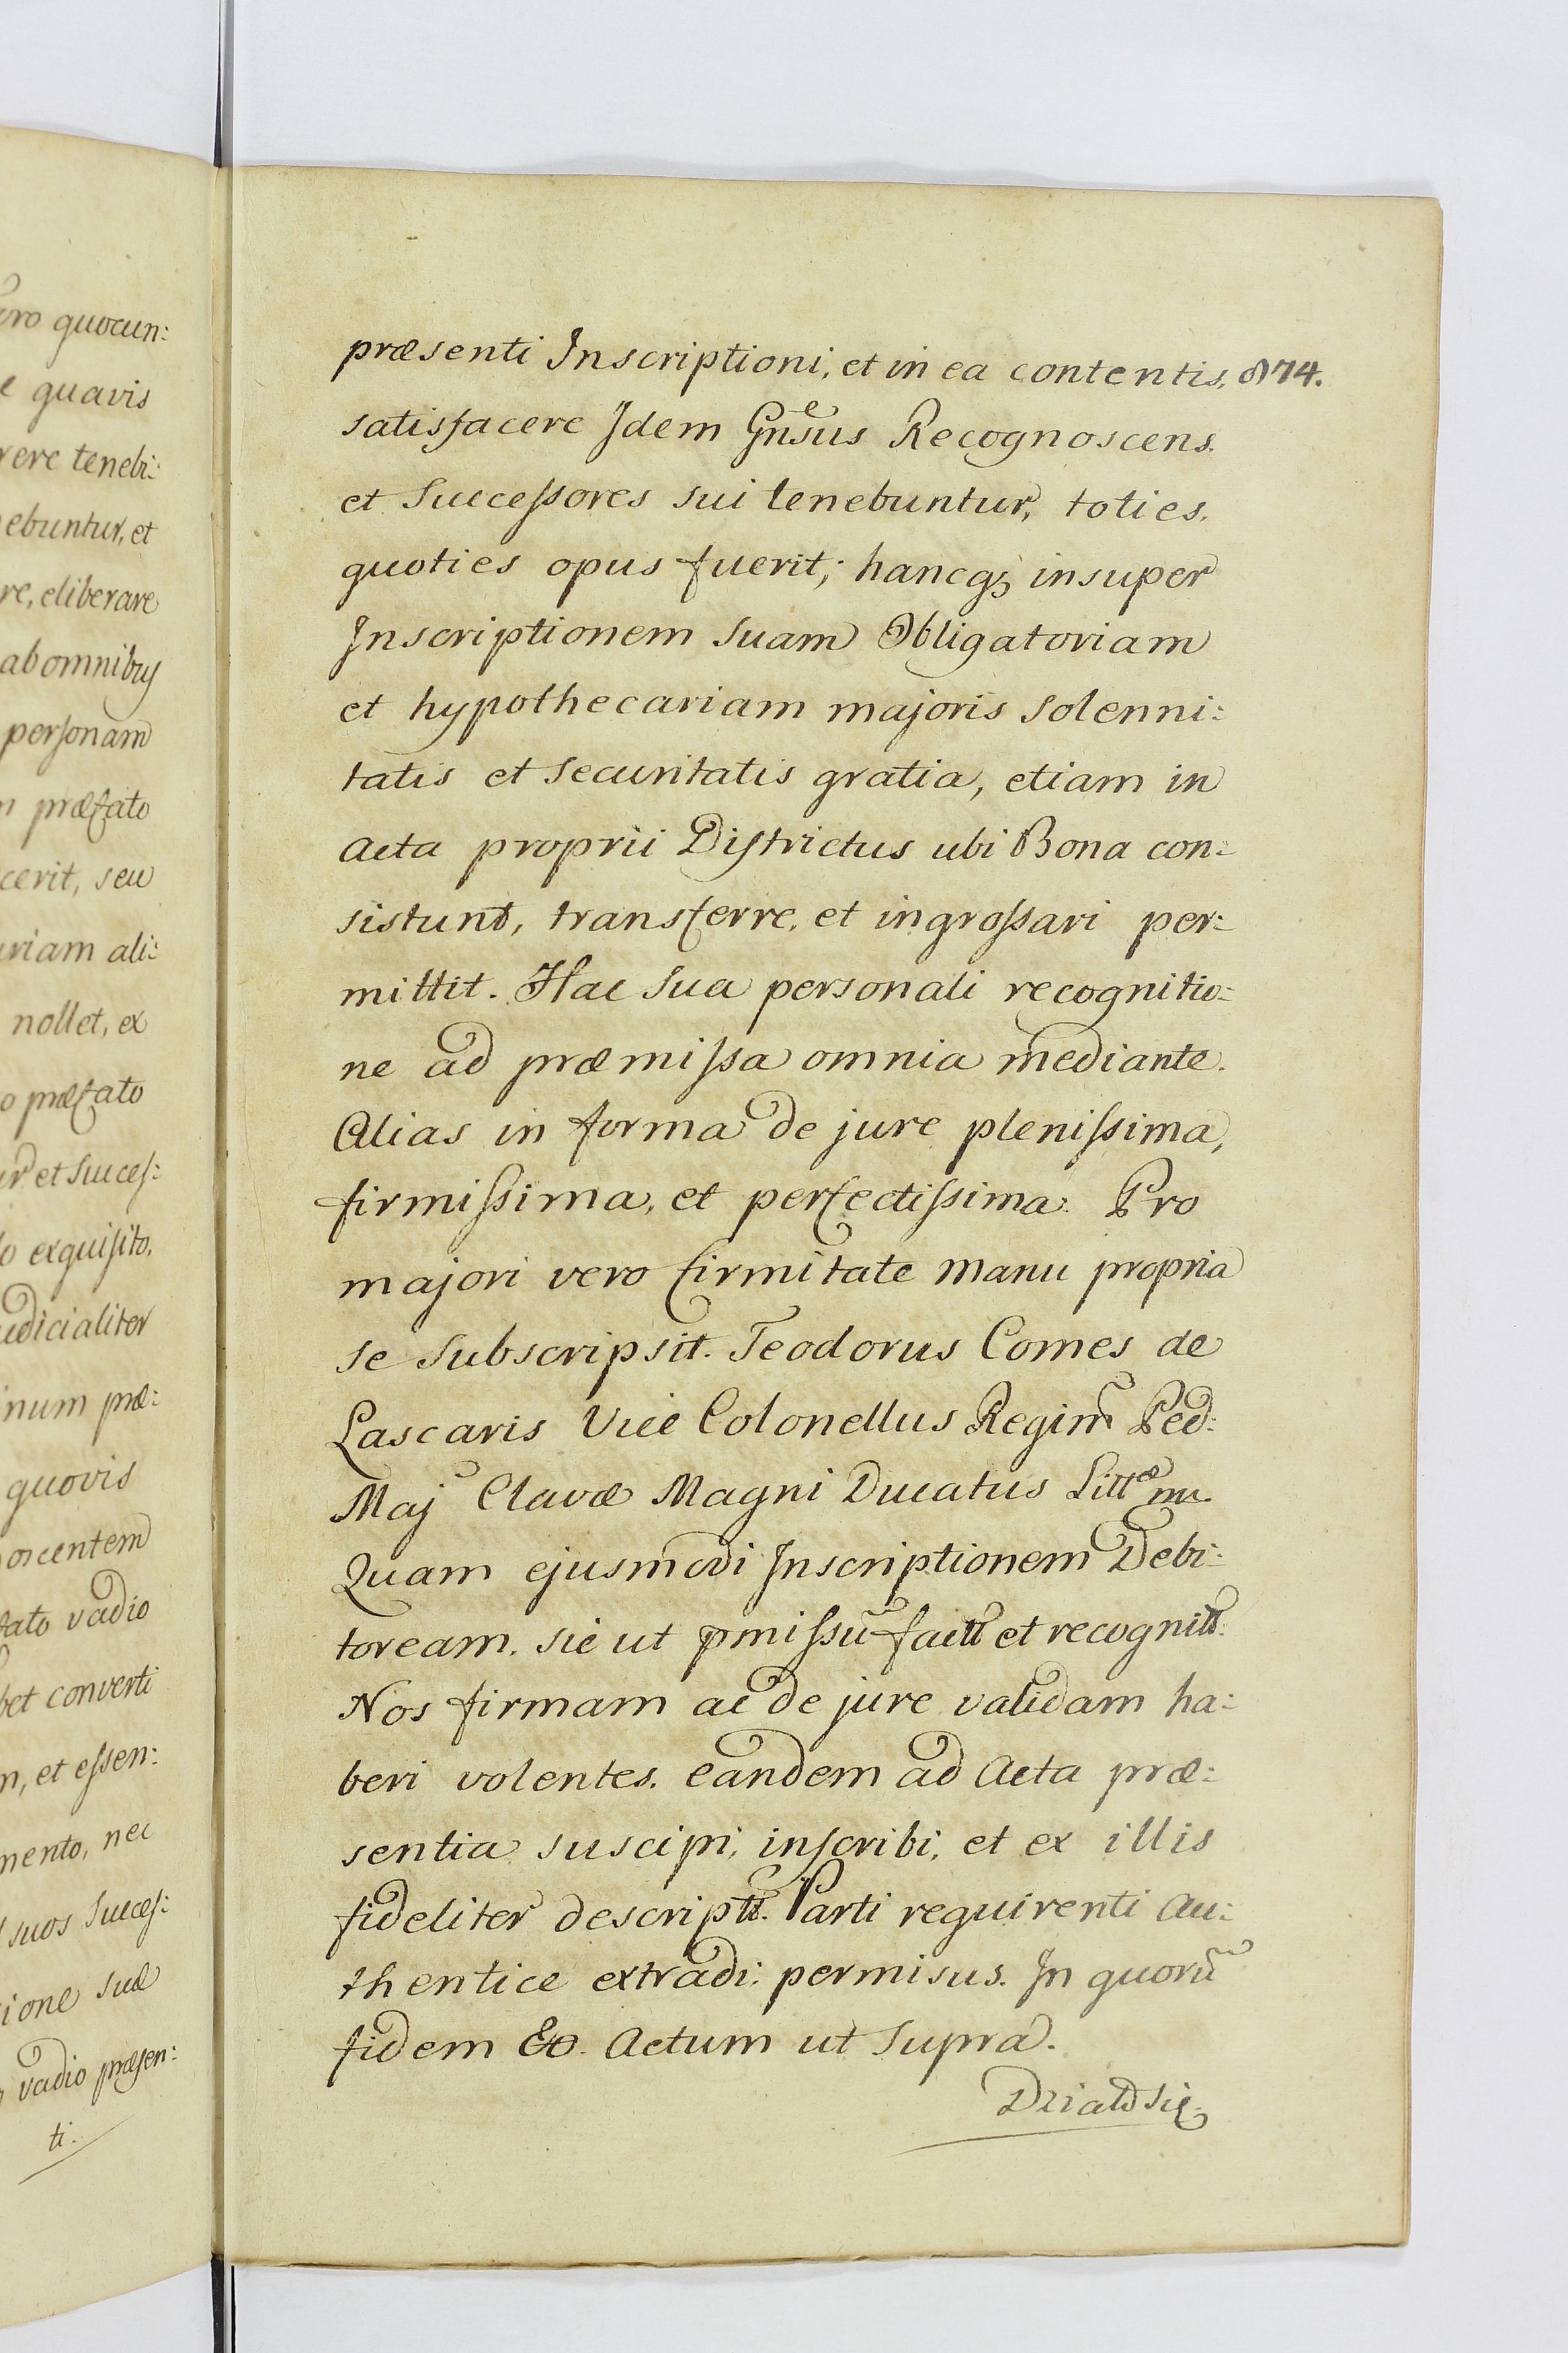 oro quocun:
e quavis
rere tenebi:
ebuntur, et
re, eliberare
ab omnibus
personam
m præfato
cerit, seu
uriam ali:
nollet, ex
o præfato
ur et Succes:
do exquisito,
udicialiter
inum præ:
quovis
oscentem
fato vadio
bet converti
m, et essen:
mento, nec
suos Succes:
ione suæ
vadio præsen:
ti.
præsenti Inscriptioni, et in ea contentis, 874.
satisfacere Idem Gnsus Recognoscens.
et Successores sui tenebuntur, toties.
quoties opus fuerit; hancq3 insuper
Inscriptionem Suam Obligatoriam
et hypothecariam majoris Solenni:
tatis et Securitatis gratia, etiam in
Acta proprii Districtus ubi Bona con:
sistunt, transferre, et ingrossari per:
mittit. Hac Sua personali recognitio:
ne ad præmissa omnia mediante.
Alias in forma de jure plenissima,
firmissima, et perfectissima. Pro
majori vero firmitate manu propria
se Subscripsit. Teodorus Comes de
Lascaris Vice Colonellus Regim Ped:
Maj Clavæ Magni Ducatus Littæ mu.
Quam ejusmodi Inscriptionem Debi:
toream. sic ut pmissũ factt et recognitt.
Nos firmam ac de jure validam ha:
beri volentes. Eandem ad Acta præ:
sentia suscipi, inscribi, et ex illis
fideliter descriptt. Parti requirenti Au:
thentice extradi: permisus. In quorũ
fidem &c. Actum ut Supra.